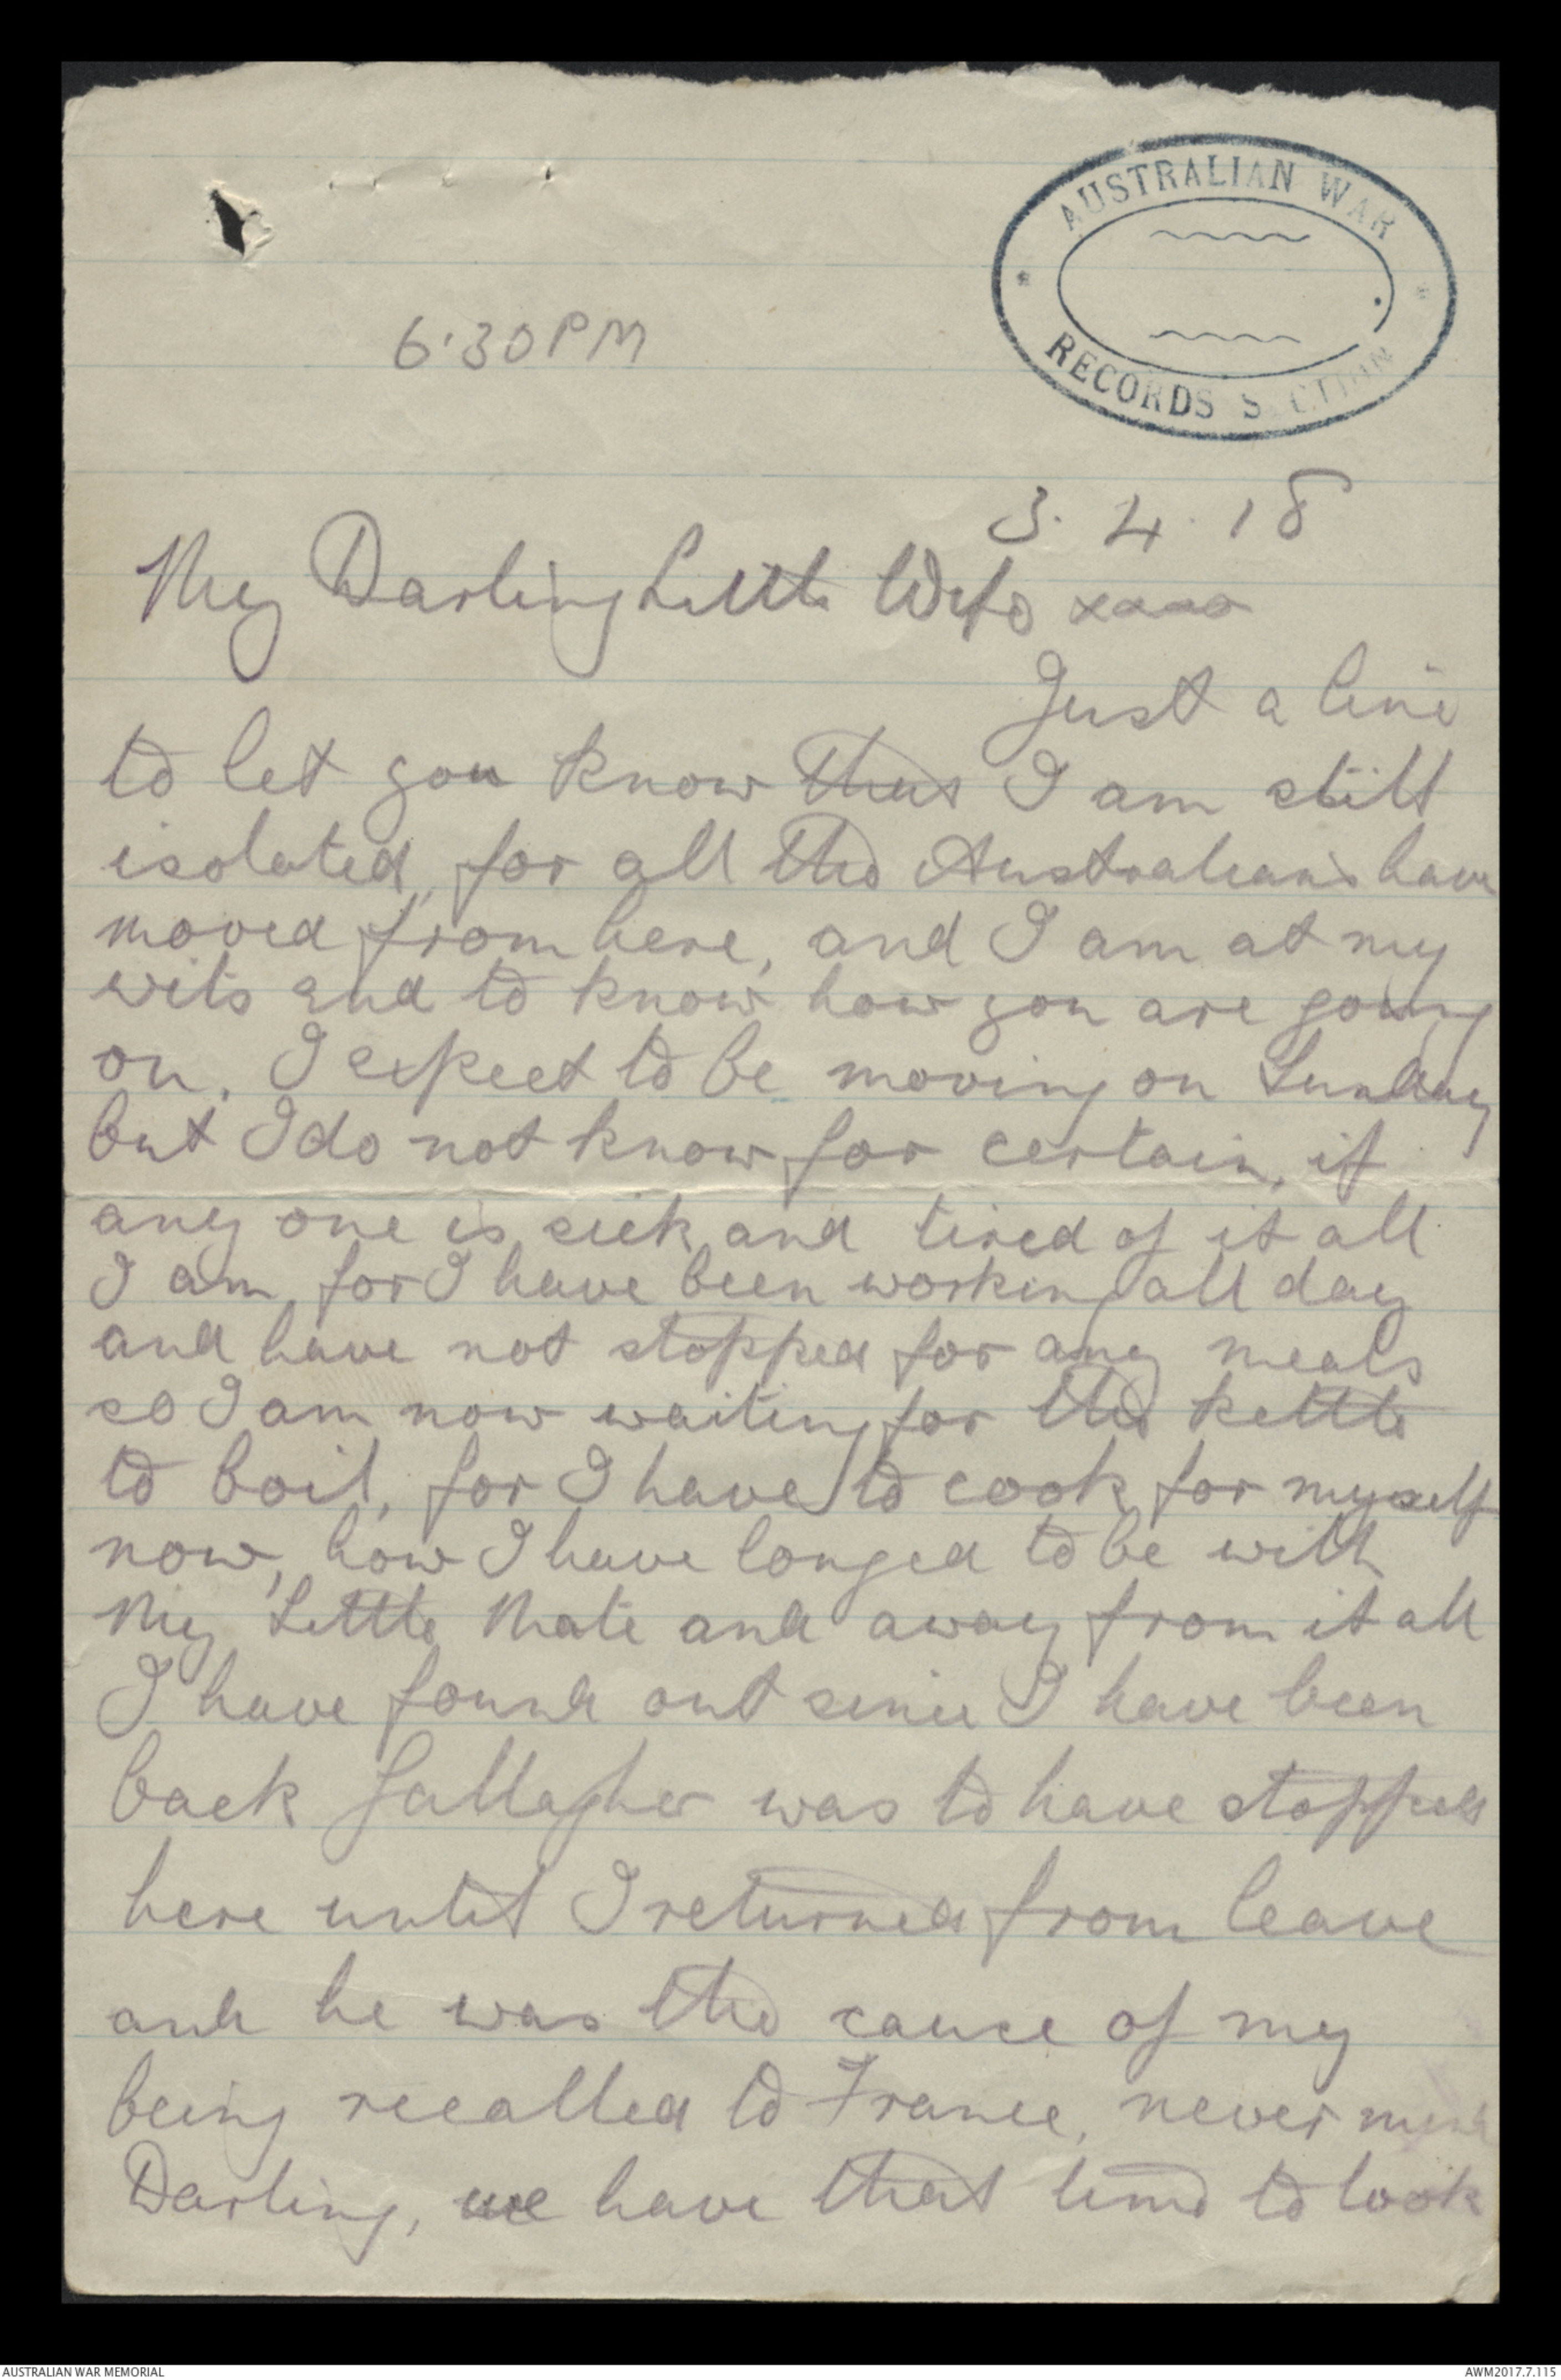 AUSTRALIAN WAR
RECORDS SECTION
6.30PM
3.4.18
My Darling Little Wife xxxx
Just a line
to let you know that I am still
isolated, for all the Australians have
moved from here, and I am at my
wits end to know how you are going
on, I expect to be moving on Sunday
but I do not know for certain, if
any one is sick and tired of it all
I am, for I have been working all day
and have not stopped for any meals
so I am now waiting for the kettle
to boil, for I have to cook for myself
now, how I have longed to be with
My Little Mate and away from it all
I have found out since I have been
back Gallagher was to have stopped
here until I returned from leave
and he was the cause of my
being recalled to France, never mind
Darling, we have that time to look
AUSTRALIAN WAR MEMORIAL
AWM2017.7.115